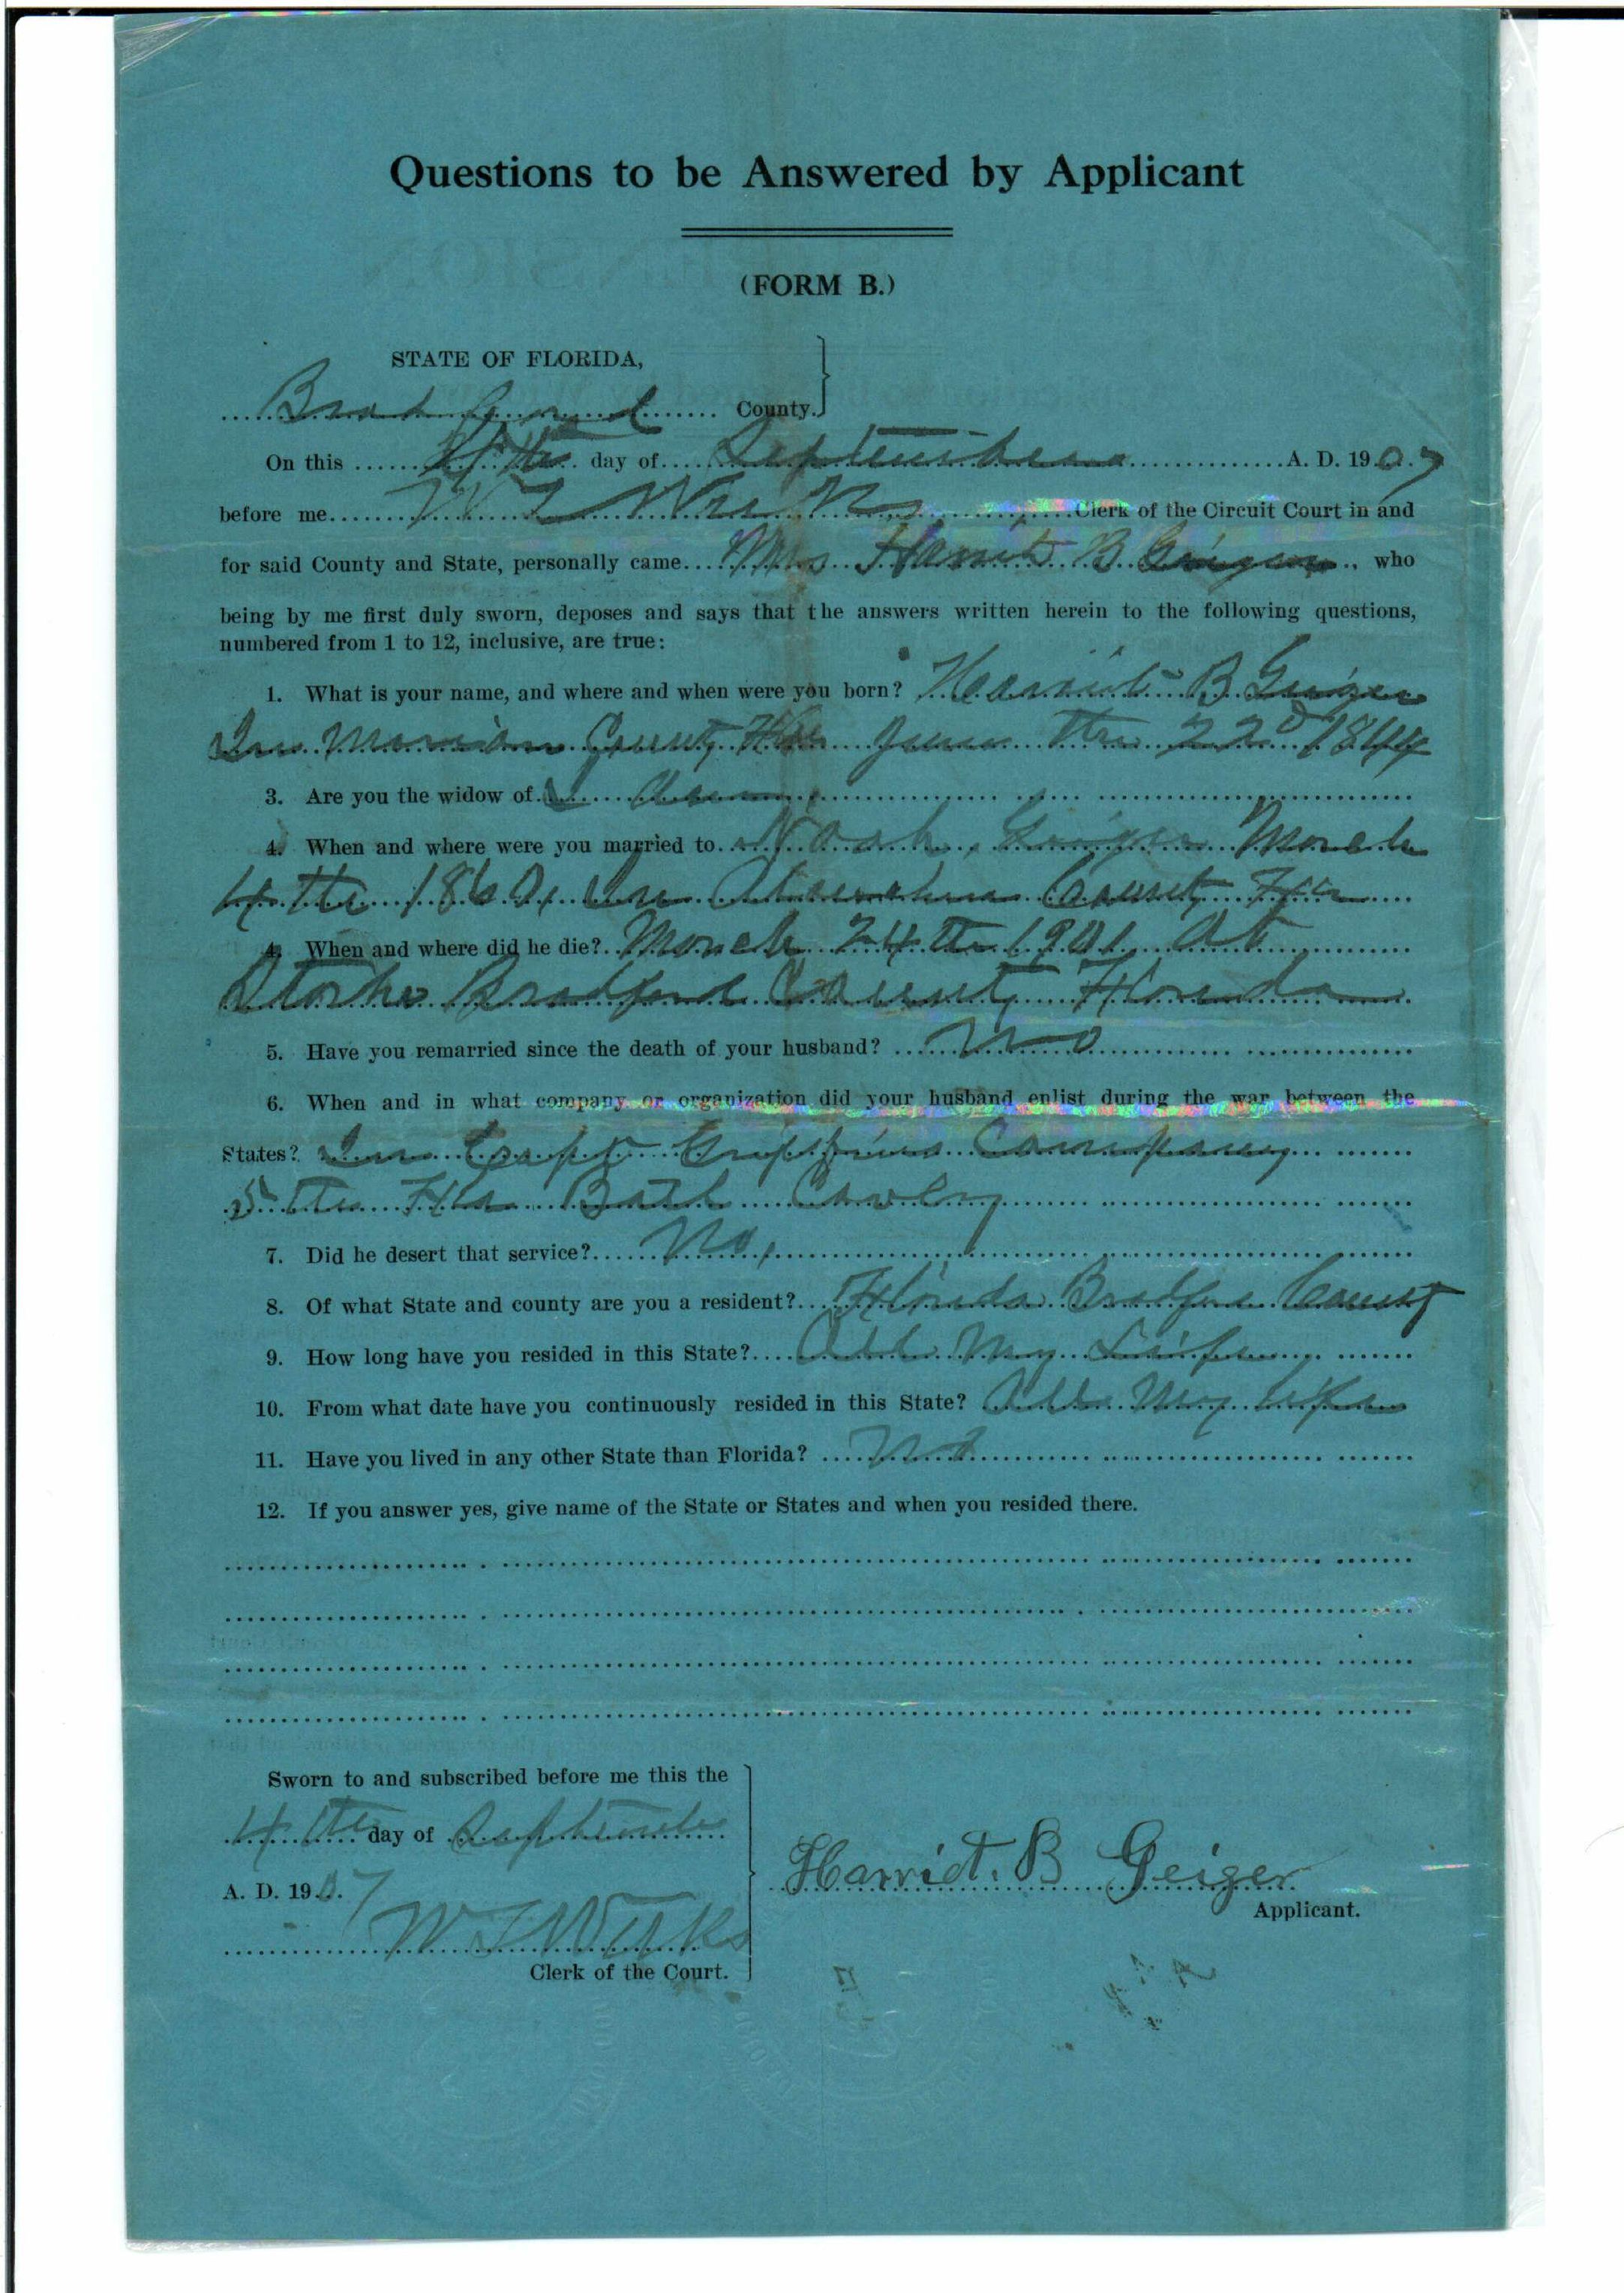 Questions to be Answered by Applicant
(FORM B.)
STATE OF FLORIDA,
Bradford County.
On this 4th day of September A. D. 1907
before me W T Weeks Clerk of the Circuit Court in and
for said County and State, personally came Mrs Harriet B Geiger, who
being by me first duly sworn, deposes and says that the answers written herein to the following questions,
numbered from 1 to 12, inclusive, are true:
1. What is your name, and where and when were you born? Harriet B Geiger
In Marion County Fla June the 22d 1844
3. Are you the widow of I am
4. When and where were you married to Noah Geiger March
4th In Alachua County Fla
4. When and where did he die? March 24th 1901 at
Starke Bradford County Florida
5. Have you remarried since the death of your husband? No
6. When and in what company or organization did your husband enlist during the war between the
States? In Capt Griffins Company
5th Fla Batl Cavlry
7. Did he desert that service? No,
8. Of what State and county are you a resident? Florida Bradford County
9. How long have you resided in this State? All My Life
10. From what date have you continuously resided in this State? All My life
11. Have you lived in any other State than Florida? No
12. If you answer yes, give name of the State or States and when you resided there.
Sworn to and subscribed before me this the
4th day of September
A. D. 1907
W T Weeks
Clerk of the Court.
Harriet. B Geiger
Applicant.